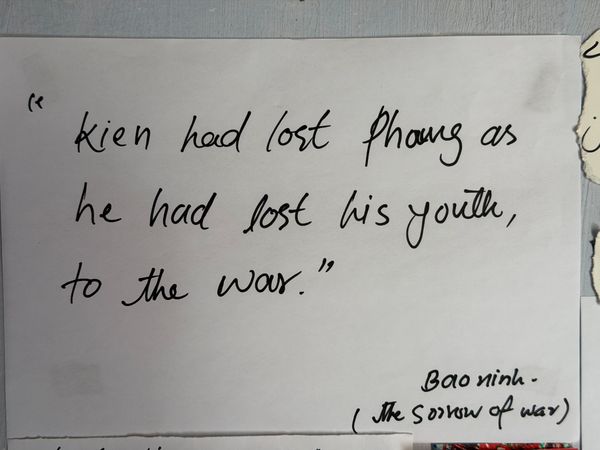 "Kien had lost Phoung as
he had lost his youth,
to the war."
Bao ninh.
(The Sorrow of war)